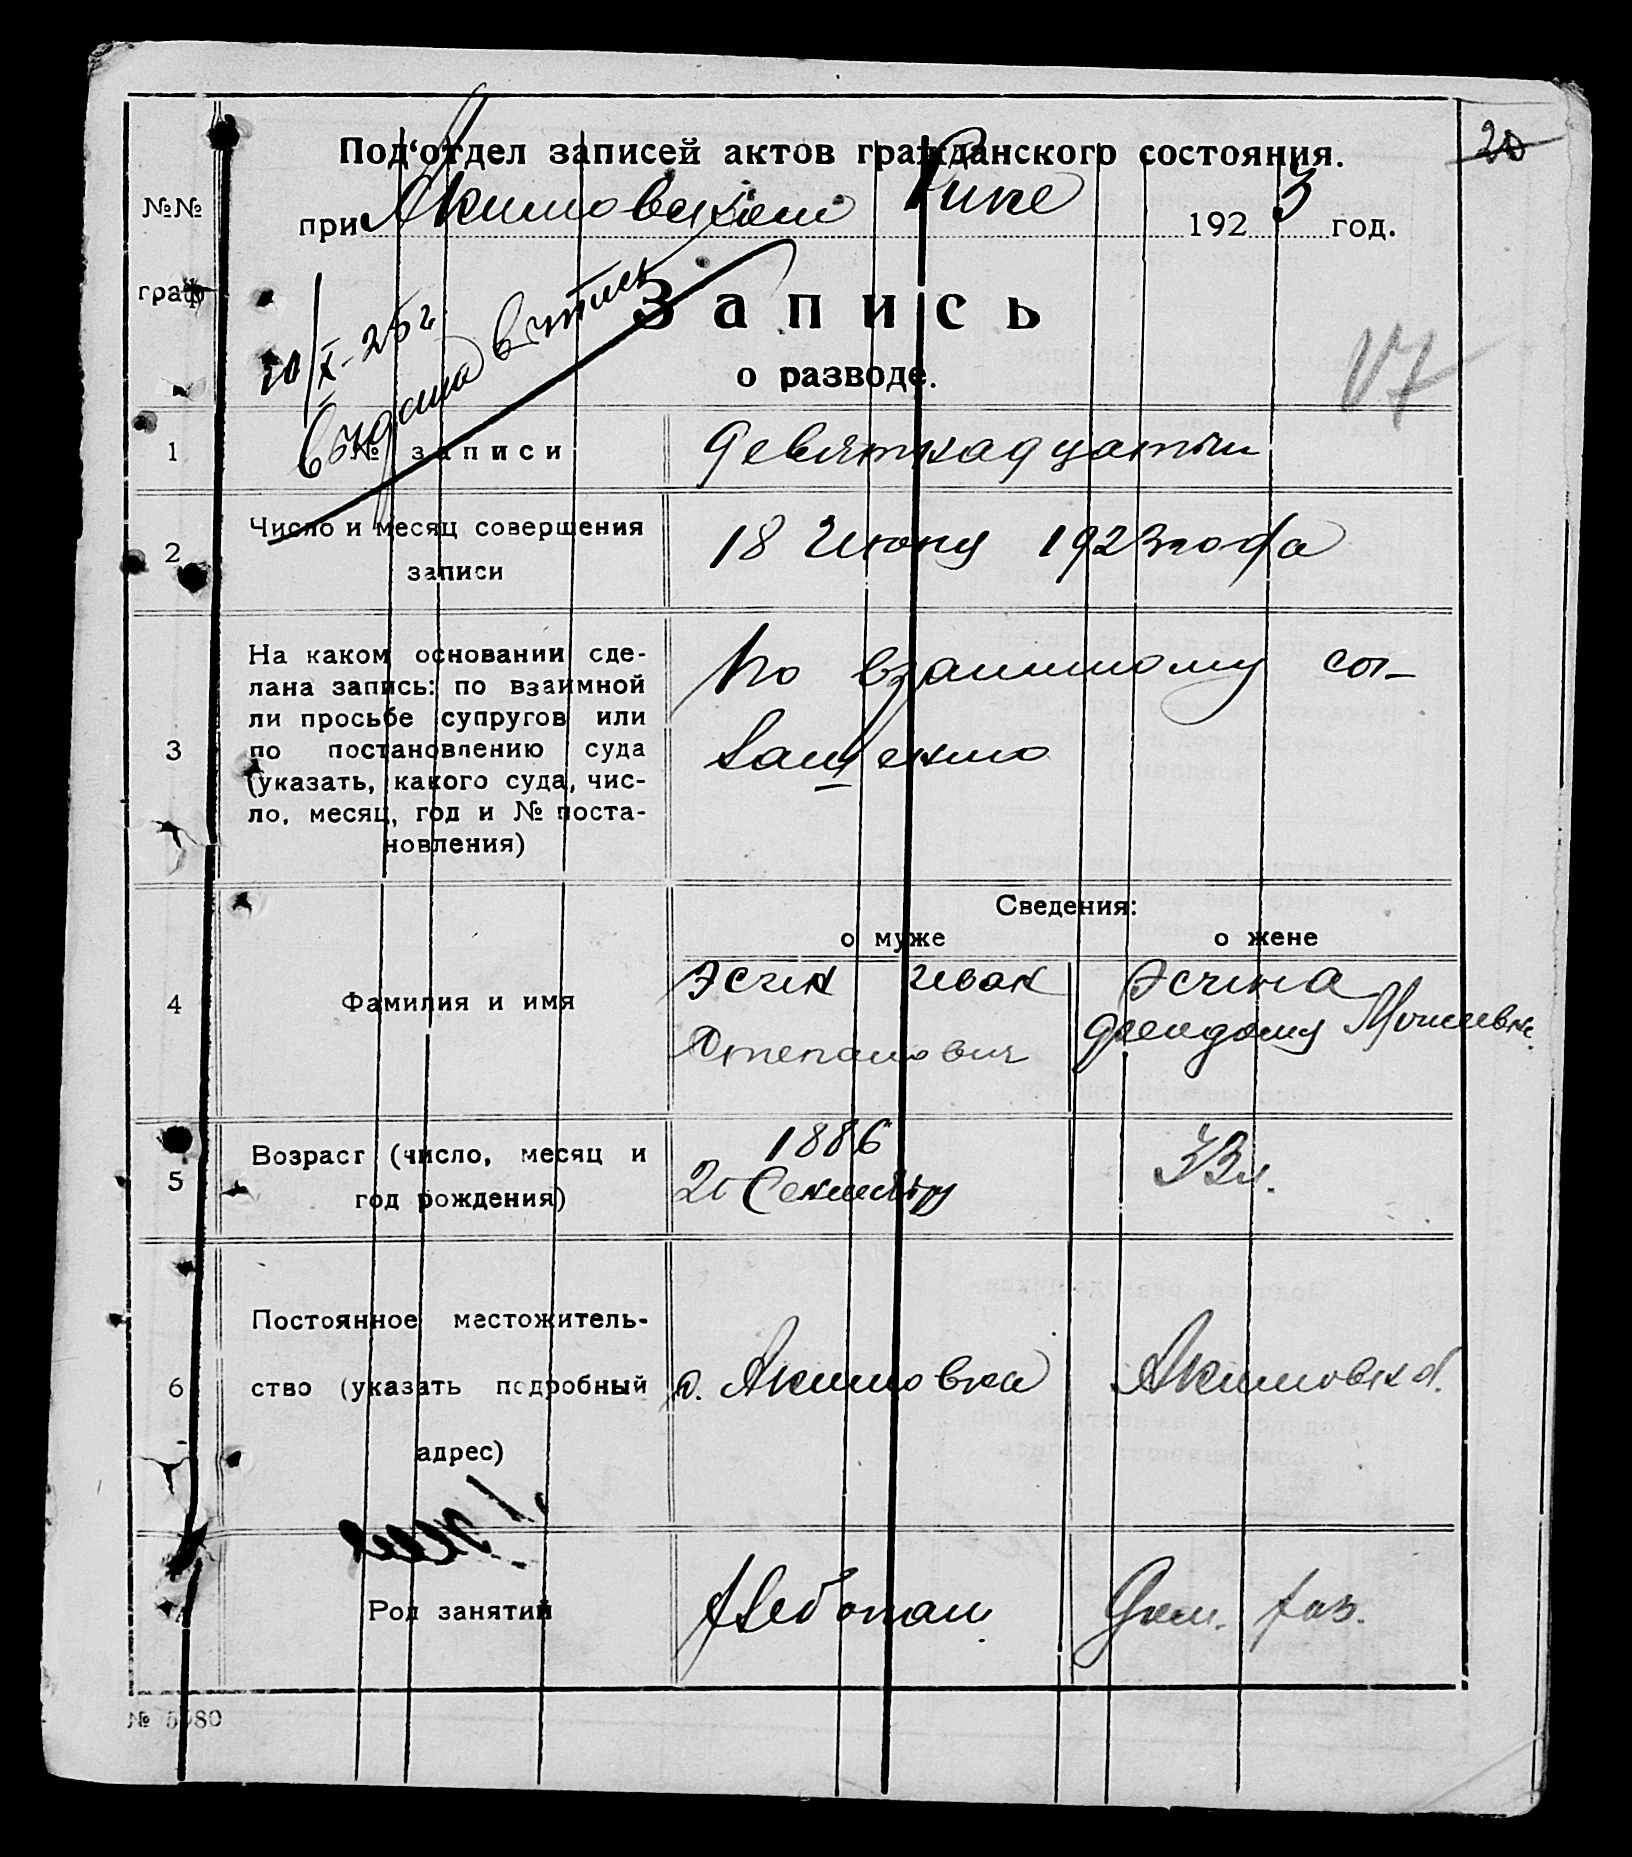 20
Под‘отдел записей актов гражданского состояния.
№№
граф
при Акимовском Рике 1923 год.
Запись
о разводе.
10/X-25 г.
выдана выпись
17
1
№ записи
Девятнадцатый
2
Число и месяц совершения
записи
18 Июня 1923 года
3
На каком основании сде-
лана запись: по взаимной
ли просьбе супругов или
по постановлению суда
(указать, какого суда, чис-
ло, месяц, год и № поста-
новления)
По взаимному со-
Сведения:
о муже
о жене
4
Фамилия и имя
Эсин Иван
Степанович
Эсина
Моисеевн.
5
Возраст (число, месяц и
год рождения)
1886
20 Сентября
33 л.
6
Постоянное местожитель-
ство (указать подробный
адрес)
с. Акимовка
Акимовка.
7
Род занятий
Хлебопаш.
Дом. хоз.
№ 5080